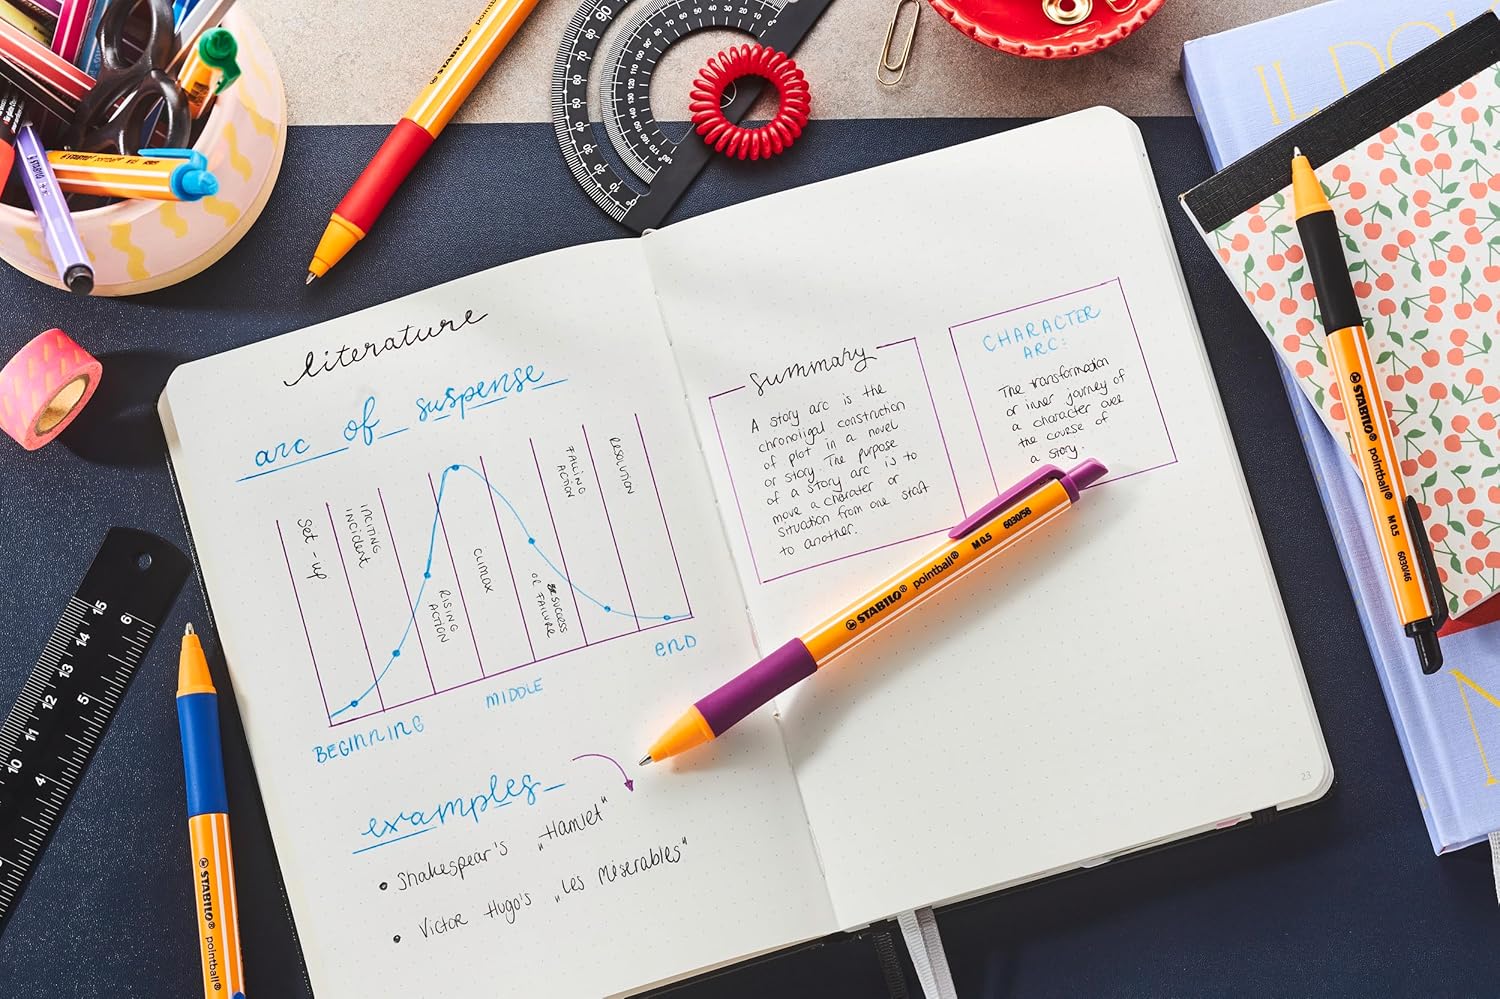 literature
arc of suspense
Set-up
INCITING
INCIDENT
RISING
ACTION
CLIMAX
SUCCESS
OR FAILURE
FALLING
ACTION
RESOLUTION
BEGINNING
MIDDLE
END
examples
• Shakespear's „Hamlet"
• Victor Hugo's „Les Miserables"
summary
A story arc is the
chronoligal construction
of plot in a novel
or story. The purpose
of a story arc is to
move a charater or
situation from one
to another.
CHARACTER
ARC:
The transformation
or inner journey of
a character over
the course of
a story.
23
STABILO® pointball® M 0.5 6030/58
STABILO® pointball® M 0.5 6030/46
STABILO® pointball®
STABILO®
IL DO
N
90 80 70 60 50 40 30 20 10 0
15 14 13 12 11 10
6 5 4